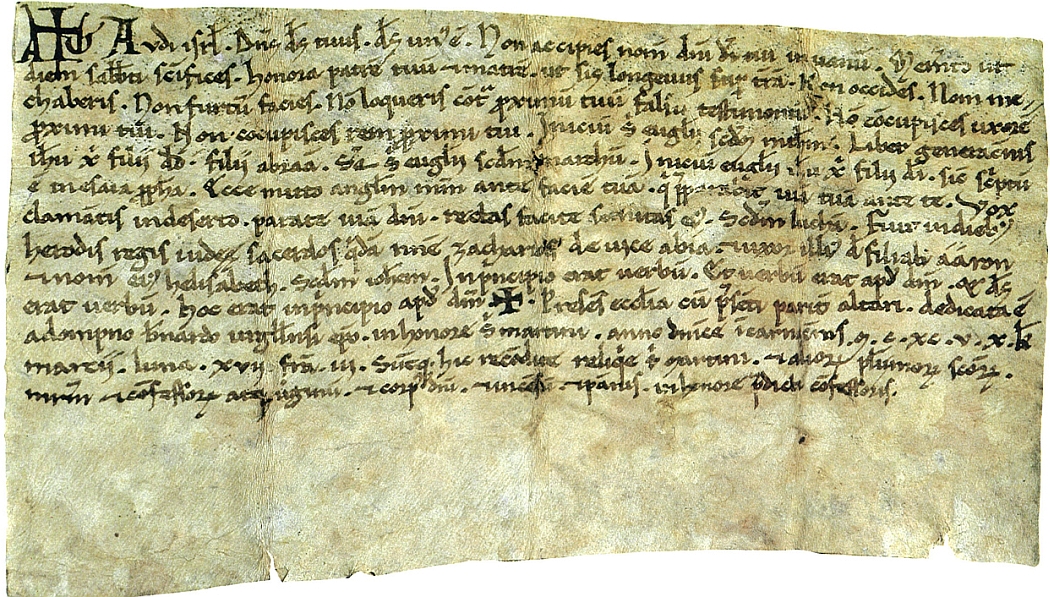 Audi isrl. Dns ds tuus. ds un' e. Non accipies nom dni di tui in vanu. Memto ut
diem sabbti scifices. honora patre tuu & matre. ut sis longevus sup tra. Non occides. Nom me
chaberis. Non furtu facies. No loqueris cot proximu tuu falsu testimoniu. No cocupisces uxore
proximi tui. Non cocupisces rem proximi tui. Iniciu s euglii scdm mthm. Liber generacinis
ihu x filii dd. filii abraa. s euglii scdm marchu. Iniciu euglii ihu x filii di. sic scptu
e in esaia ppha. Ecce mitto anglm mm ante facie tua. q pparabit via tua ante te. Vox
clamatis in deserto. parate via dni. rectas facite semitas ei'. Scdm lucha. Fuit in dieb'
herodis regis iudee sacerdos qda nne zacharias de vice abia. & uxor illi' d filiab' aaron
& nom ei' helisabeth. Scdm iohem. In pncipio erat verbu. Et verbu erat apd dm. & ds
erat verbu. hoc erat in pncipio apd dm ✠. Preses ecclia cu pseti parit altari. dedicata e
a dompno bnardo urgllnsi epo. in honore s martini. anno dnice icarnacionis. m. c. xc. v. x. kl
marcii. luna. xvii. fra. iii. Sutq. hic recodite reliqe s martini. & alior plurimor scor.
mrm & cofessor atq virginu. & corp' dni. & incesu & panis. in honore pdicti cofessoris.